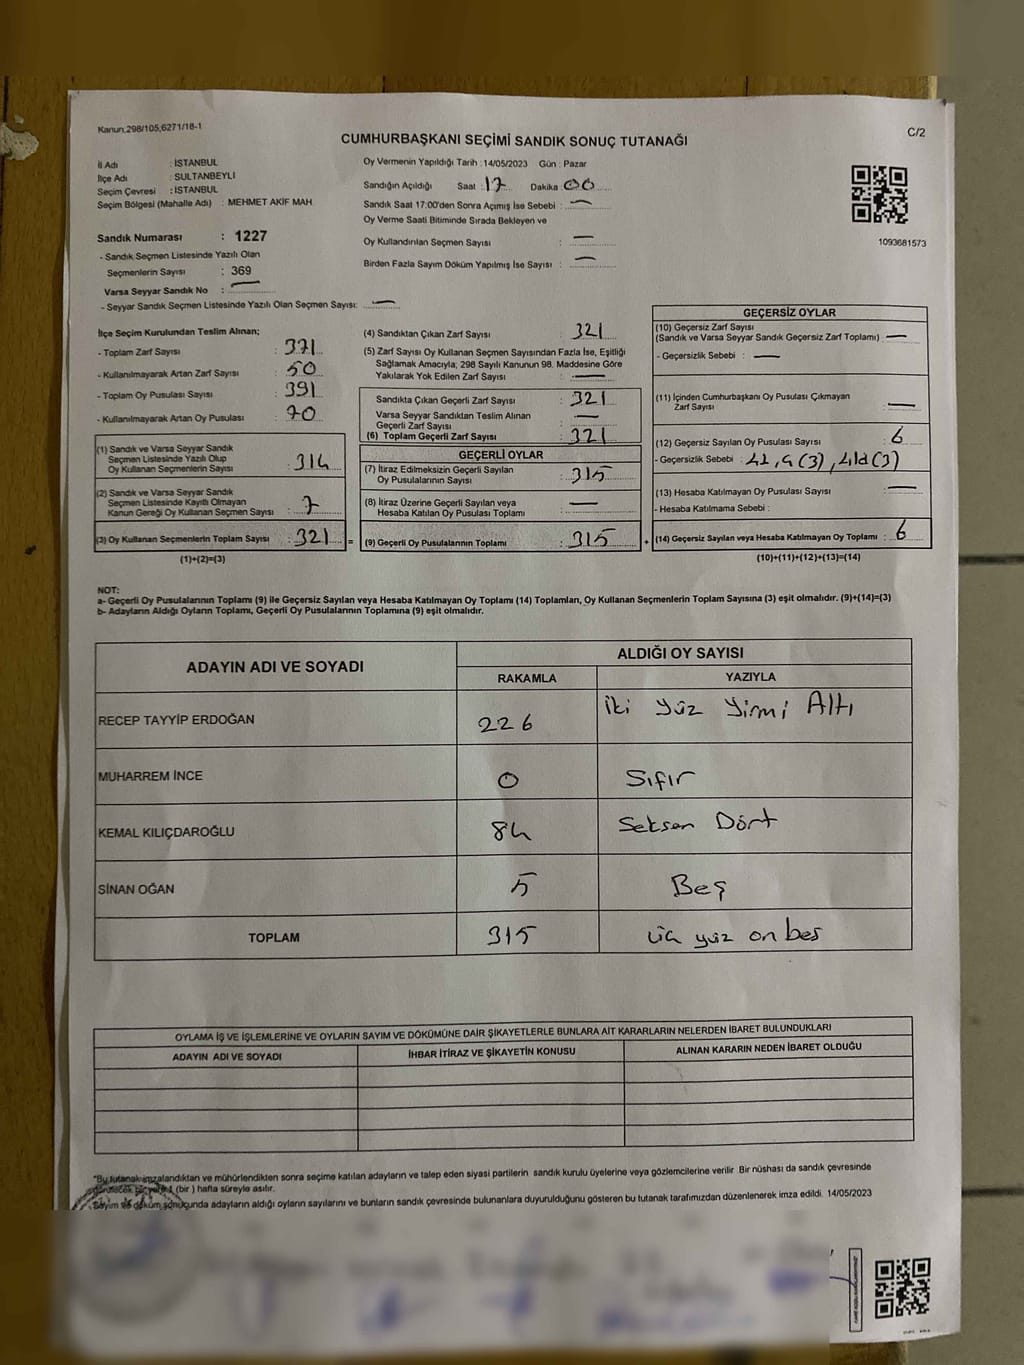 Kanun,298/105,6271/18-1
C/2
CUMHURBAŞKANI SEÇİMİ SANDIK SONUÇ TUTANAĞI
İl Adı : İSTANBUL
İlçe Adı : SULTANBEYLİ
Seçim Çevresi : İSTANBUL
Seçim Bölgesi (Mahalle Adı) : MEHMET AKİF MAH
Sandık Numarası : 1227
- Sandık Seçmen Listesinde Yazılı Olan
Seçmenlerin Sayısı : 369
Varsa Seyyar Sandık No : —
- Seyyar Sandık Seçmen Listesinde Yazılı Olan Seçmen Sayısı: —
Oy Vermenin Yapıldığı Tarih :14/05/2023 Gün : Pazar
Sandığın Açıldığı Saat : 17 Dakika : 00
Sandık Saat 17:00'den Sonra Açımış İse Sebebi : —
Oy Verme Saati Bitiminde Sırada Bekleyen ve
Oy Kullandırılan Seçmen Sayısı : —
Birden Fazla Sayım Döküm Yapılmış İse Sayısı : —
1093681573
İlçe Seçim Kurulundan Teslim Alınan;
- Toplam Zarf Sayısı : 371
- Kullanılmayarak Artan Zarf Sayısı : 50
- Toplam Oy Pusulası Sayısı : 391
- Kullanılmayarak Artan Oy Pusulası : 70
(1) Sandık ve Varsa Seyyar Sandık
Seçmen Listesinde Yazılı Olup
Oy Kullanan Seçmenlerin Sayısı : 314
(2) Sandık ve Varsa Seyyar Sandık
Seçmen Listesinde Kayıtlı Olmayan
Kanun Gereği Oy Kullanan Seçmen Sayısı : 7
(3) Oy Kullanan Seçmenlerin Toplam Sayısı : 321 =
(1)+(2)=(3)
(4) Sandıktan Çıkan Zarf Sayısı : 321
(5) Zarf Sayısı Oy Kullanan Seçmen Sayısından Fazla İse, Eşitliği
Sağlamak Amacıyla; 298 Sayılı Kanunun 98. Maddesine Göre
Yakılarak Yok Edilen Zarf Sayısı : —
Sandıkta Çıkan Geçerli Zarf Sayısı : 321
Varsa Seyyar Sandıktan Teslim Alınan
Geçerli Zarf Sayısı : —
(6) Toplam Geçerli Zarf Sayısı : 321
GEÇERLİ OYLAR
(7) İtiraz Edilmeksizin Geçerli Sayılan
Oy Pusulalarının Sayısı : 315
(8) İtiraz Üzerine Geçerli Sayılan veya
Hesaba Katılan Oy Pusulası Toplamı : —
(9) Geçerli Oy Pusulalarının Toplamı : 315 +
GEÇERSİZ OYLAR
(10) Geçersiz Zarf Sayısı
(Sandık ve Varsa Seyyar Sandık Geçersiz Zarf Toplamı) : —
- Geçersizlik Sebebi : —
(11) İçinden Cumhurbaşkanı Oy Pusulası Çıkmayan
Zarf Sayısı : —
(12) Geçersiz Sayılan Oy Pusulası Sayısı : 6
- Geçersizlik Sebebi :
(13) Hesaba Katılmayan Oy Pusulası Sayısı : —
- Hesaba Katılmama Sebebi :
(14) Geçersiz Sayılan veya Hesaba Katılmayan Oy Toplamı : 6
(10)+(11)+(12)+(13)=(14)
NOT:
a- Geçerli Oy Pusulalarının Toplamı (9) ile Geçersiz Sayılan veya Hesaba Katılmayan Oy Toplamı (14) Toplamları, Oy Kullanan Seçmenlerin Toplam Sayısına (3) eşit olmalıdır. (9)+(14)=(3)
b- Adayların Aldığı Oyların Toplamı, Geçerli Oy Pusulalarının Toplamına (9) eşit olmalıdır.
ADAYIN ADI VE SOYADI ALDIĞI OY SAYISI
RAKAMLA YAZIYLA
RECEP TAYYİP ERDOĞAN 226 İki Yüz Yirmi Altı
MUHARREM İNCE 0 Sıfır
KEMAL KILIÇDAROĞLU 84 Seksen Dört
SİNAN OĞAN 5 Beş
TOPLAM 315 üç yüz on beş
OYLAMA İŞ VE İŞLEMLERİNE VE OYLARIN SAYIM VE DÖKÜMÜNE DAİR ŞİKAYETLERLE BUNLARA AİT KARARLARIN NELERDEN İBARET BULUNDUKLARI
ADAYIN ADI VE SOYADI İHBAR İTİRAZ VE ŞİKAYETİN KONUSU ALINAN KARARIN NEDEN İBARET OLDUĞU
*Bu tutanak imzalandıktan ve mühürlendikten sonra seçime katılan adayların ve talep eden siyasi partilerin sandık kurulu üyelerine veya gözlemcilerine verilir Bir nüshası da sandık çevresinde
1 (bir ) hafta süreyle asılır.
Sayım ve döküm sonucunda adayların aldığı oyların sayılarını ve bunların sandık çevresinde bulunanlara duyurulduğunu gösteren bu tutanak tarafımızdan düzenlenerek imza edildi. 14/05/2023